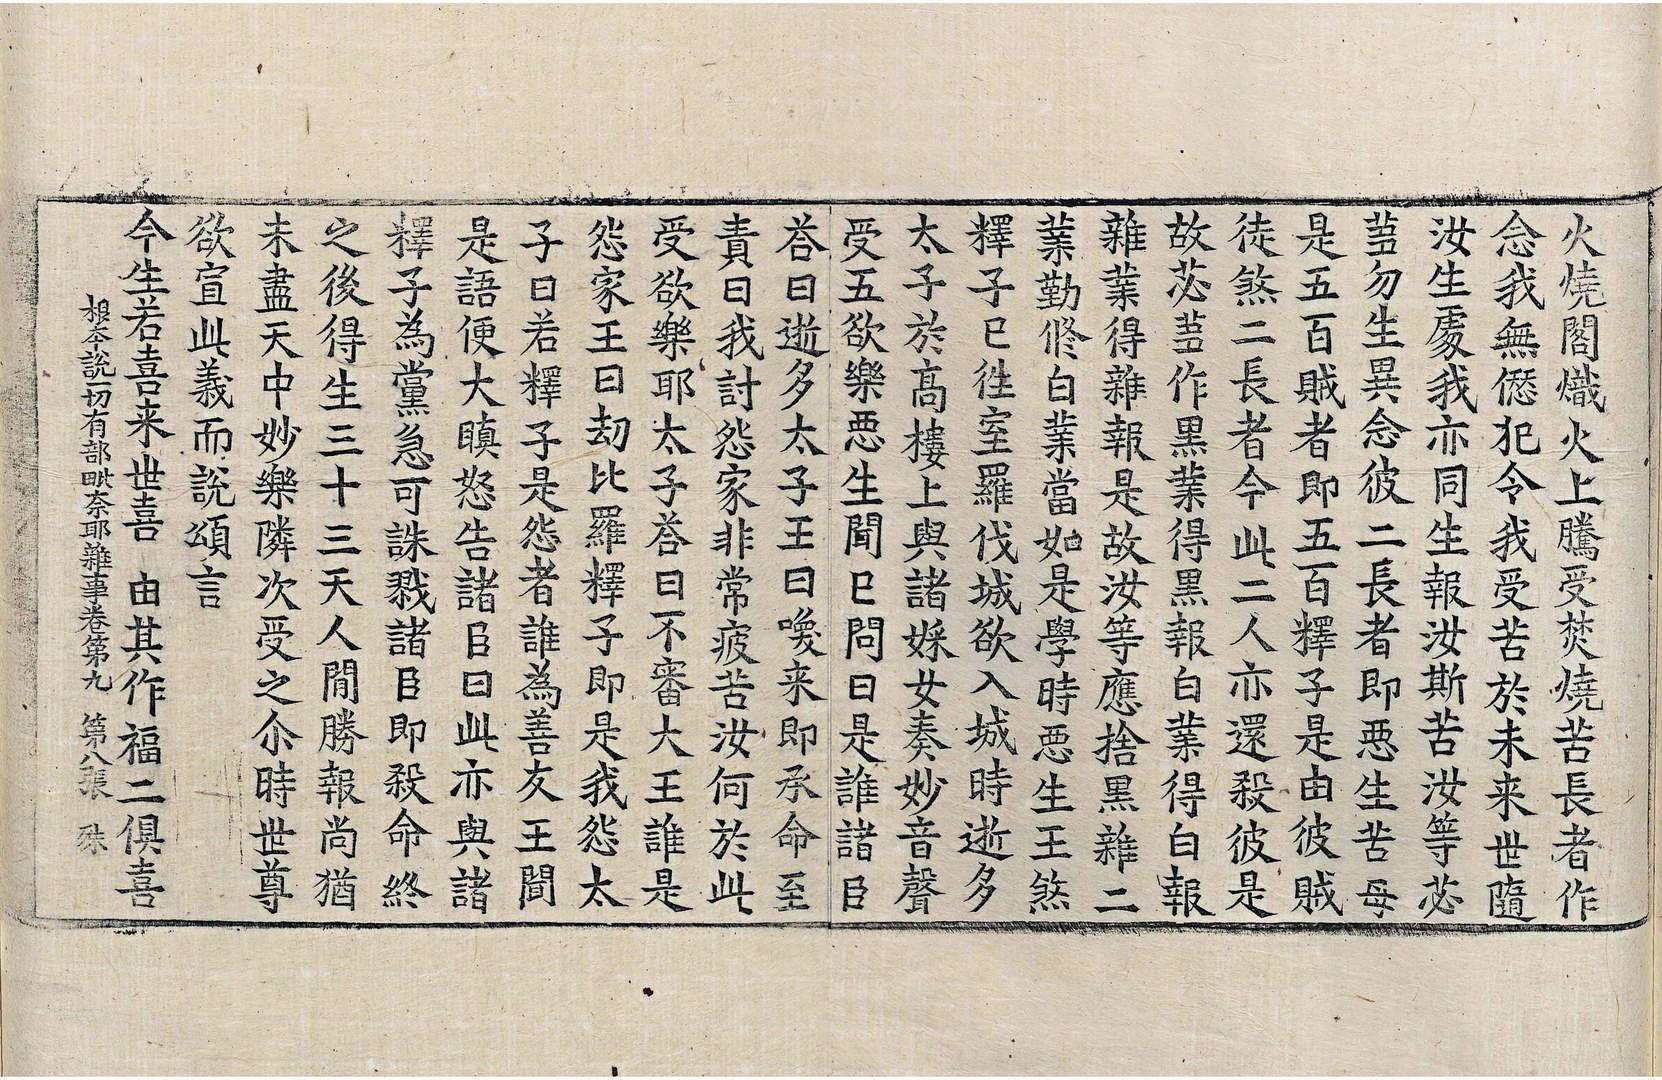 火燒閣熾火上騰受焚燒苦長者作
念我無㒸犯令我受苦於未来世隨
汝生處我亦同生報汝斯苦汝等苾
蒭勿生異念彼二長者即惡生苦母
是五百賊者即五百釋子是由彼賊
徒煞二長者今此二人亦還殺彼是
故苾蒭作黒業得黒報白業得白報
雜業得雜報是故汝等應捨黒雜二
業勤修白業當如是學時惡生王煞
釋子已徃室羅伐城欲入城時逝多
太子於髙樓上與諸婇女奏妙音聲
受五欲樂惡生聞已問曰是誰諸臣
荅曰逝多太子王曰喚来即承命至
責曰我討怨家非常疲苦汝何於此
受欲樂耶太子荅曰不審大王誰是
怨家王曰劫比羅釋子即是我怨太
子曰若釋子是怨者誰為善友王聞
是語便大瞋怒告諸臣曰此亦與諸
釋子為黨急可誅戮諸臣即殺命終
之後得生三十三天人間勝報尚猶
未盡天中妙樂隣次受之尒時世尊
欲宣此義而說頌言
今生若喜来世喜　由其作福二俱喜
根本說一切有部毗奈耶雜事卷第九　第八張　殊